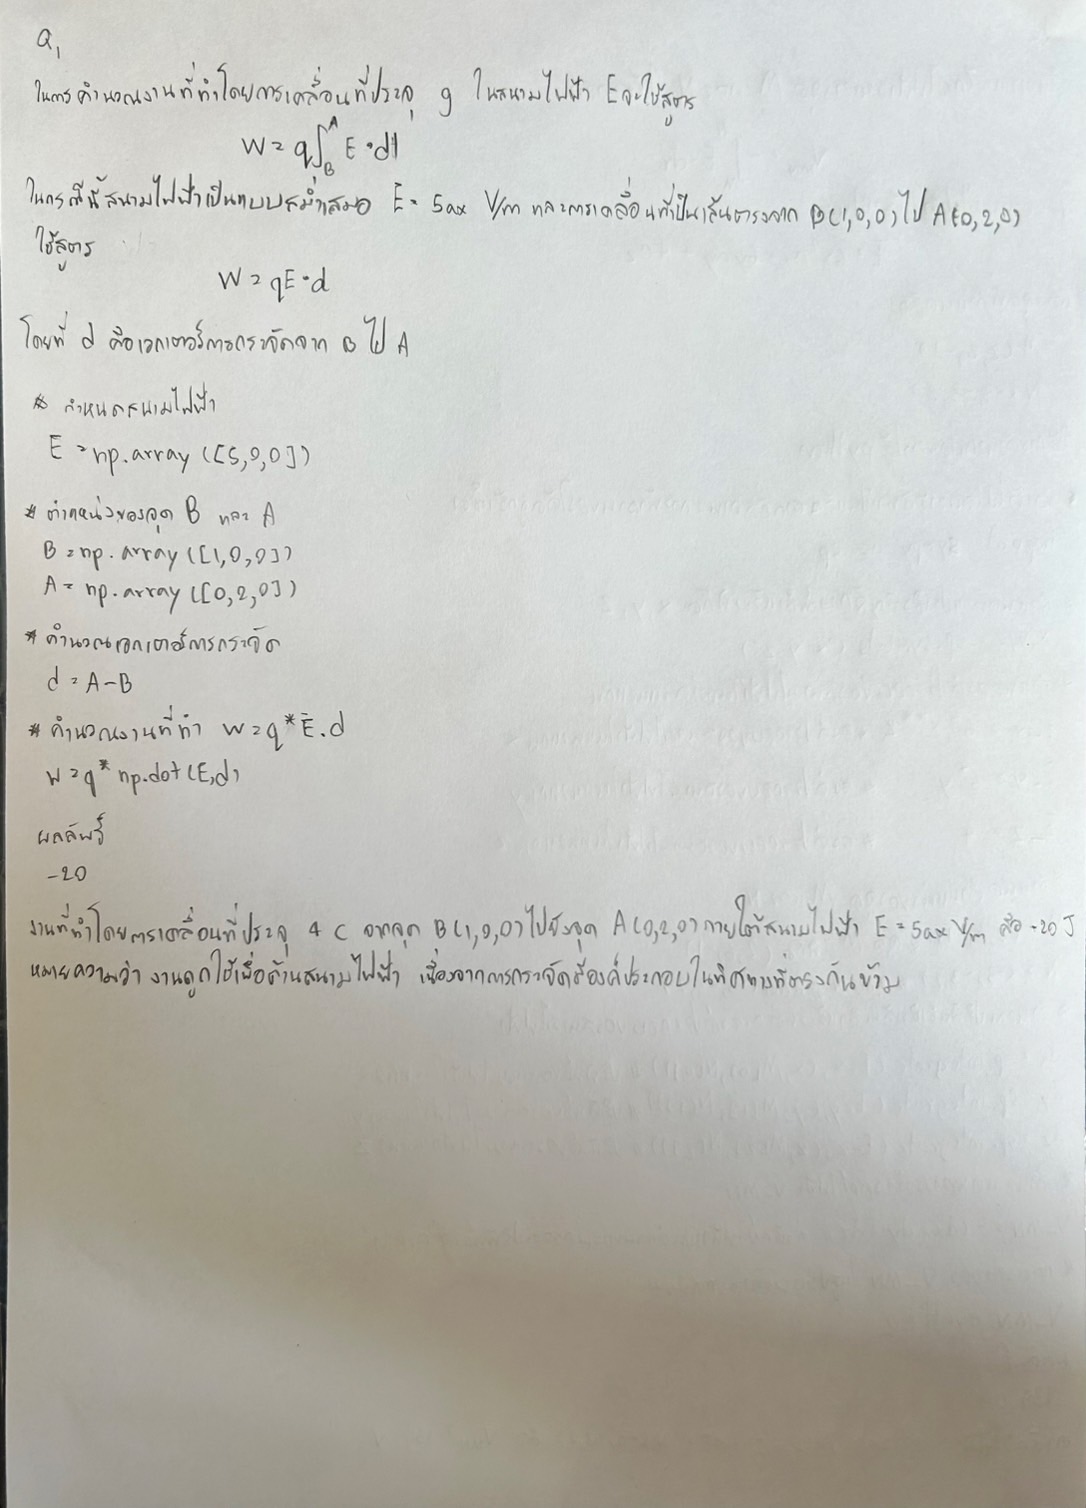 Q1
ในการคำนวณงานที่ทำโดยการเคลื่อนที่ประจุ q ในสนามไฟฟ้า E จะใช้สูตร
W = q∫_B^A E·dl
ในกรณีนี้สนามไฟฟ้าเป็นแบบสม่ำเสมอ E = 5ax V/m และการเคลื่อนที่เป็นเส้นตรงจาก B(1,0,0) ไป A(0,2,0)
ใช้สูตร
W = qE·d
โดยที่ d คือเวกเตอร์การกระจัดจาก B ไป A
# กำหนดสนามไฟฟ้า
E = np.array([5,0,0])
# ตำแหน่งของจุด B และ A
B = np.array([1,0,0])
A = np.array([0,2,0])
# คำนวณเวกเตอร์การกระจัด
d = A-B
# คำนวณงานที่ทำ W = q*E.d
W = q* np.dot(E,d)
ผลลัพธ์
-20
งานที่ทำโดยการเคลื่อนที่ประจุ 4 C จากจุด B(1,0,0) ไปยังจุด A(0,2,0) ภายใต้สนามไฟฟ้า E = 5ax V/m คือ -20 J
หมายความว่า งานถูกใช้เพื่อต้านสนามไฟฟ้า เนื่องจากการกระจัดมีองค์ประกอบในทิศทางที่ตรงกันข้าม